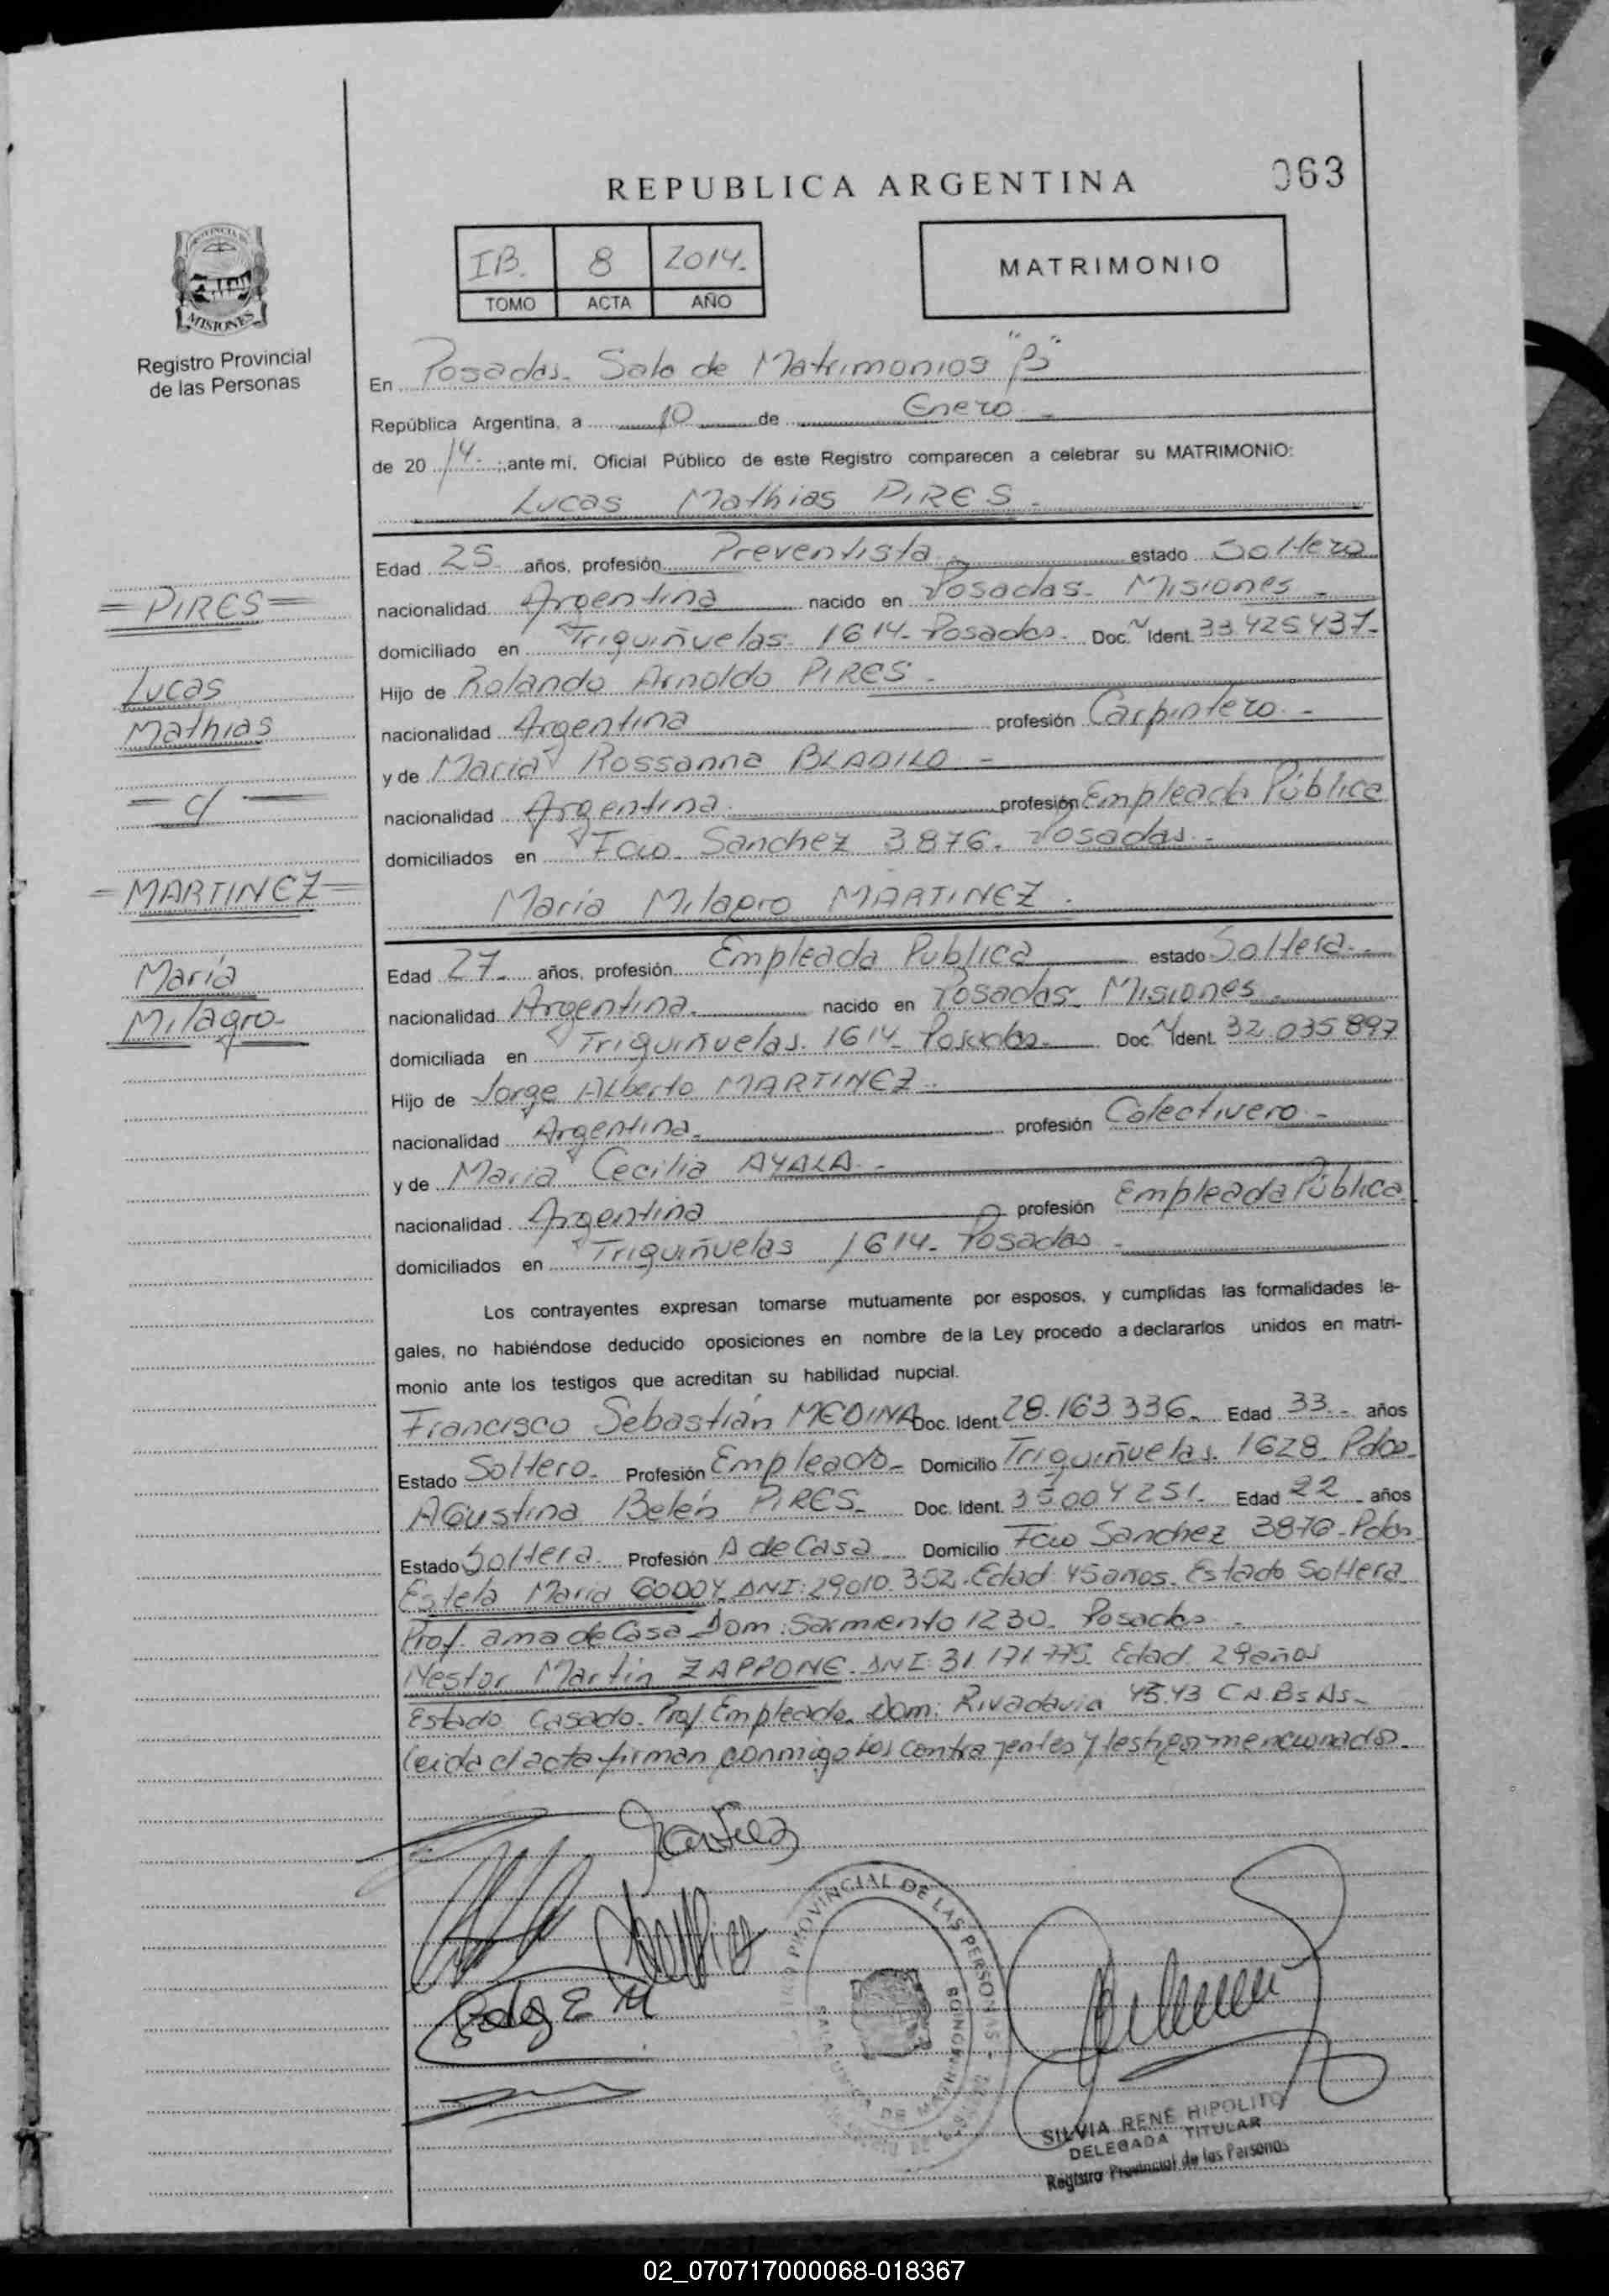 063
REPUBLICA ARGENTINA
IB. 8 2014.
TOMO ACTA AÑO
MATRIMONIO
PROVINCIA DE
MISIONES
Registro Provincial
de las Personas
En Posadas. Sala de Matrimonios "B"
República Argentina, a 10 de Enero
de 20 14. ;ante mí, Oficial Público de este Registro comparecen a celebrar su MATRIMONIO:
Lucas Mathias PIRES.
Edad 25. años, profesión Preventista. estado Soltero
=PIRES=
nacionalidad Argentina nacido en Posadas. Misiones.
domiciliado en Triquiñuelas. 1614. Posadas. Doc. N Ident. 33.425.437.
Lucas
Hijo de Rolando Arnoldo PIRES.
Mathias
nacionalidad Argentina profesión Carpintero.
y de María Rossanna BLADILO
— c/ —
nacionalidad Argentina. profesión Empleada Pública
domiciliados en Fco. Sanchez 3876. Posadas.
=MARTINEZ=
María Milagro MARTINEZ.
María
Edad 27. años, profesión Empleada Publica estado Soltera.
Milagro
nacionalidad Argentina. nacido en Posadas. Misiones
domiciliada en Triquiñuelas. 1614. Posadas. Doc. N Ident. 32.035897
Hijo de Jorge Alberto MARTINEZ.
nacionalidad Argentina. profesión Colectivero.
y de Maria Cecilia AYALA.
nacionalidad Argentina profesión Empleada Pública.
domiciliados en Triquiñuelas 1614. Posadas
Los contrayentes expresan tomarse mutuamente por esposos, y cumplidas las formalidades le-
gales, no habiéndose deducido oposiciones en nombre de la Ley procedo a declararlos unidos en matri-
monio ante los testigos que acreditan su habilidad nupcial.
Francisco Sebastián MEDINA Doc. Ident. 28.163.336. Edad 33. años
Estado Soltero. Profesión Empleado. Domicilio Triquiñuelas. 1628. Pdas.
Agustina Belén PIRES. Doc. Ident. 35.004251. Edad 22 años
Estado Soltera. Profesión A de Casa Domicilio Fco Sanchez 3876. Pdas.
Estela Maria GODOY. DNI: 29.010.352. Edad: 45 años. Estado Soltera
Prof. ama de Casa Dom: Sarmiento 1230. Posadas
Nestor Martin ZAPPONE. DNI: 31.171.775. Edad. 29 años
Estado Casado. Prof Empleado. Dom: Rivadavia 4543 C.A.BsAs.
leida el acta firman conmigo los contrayentes y testigos mencionados.
PROVINCIAL DE LAS PERSONAS
SILVIA RENÉ HIPOLITO
DELEGADA TITULAR
Registro Provincial de las Personas
02_070717000068-018367